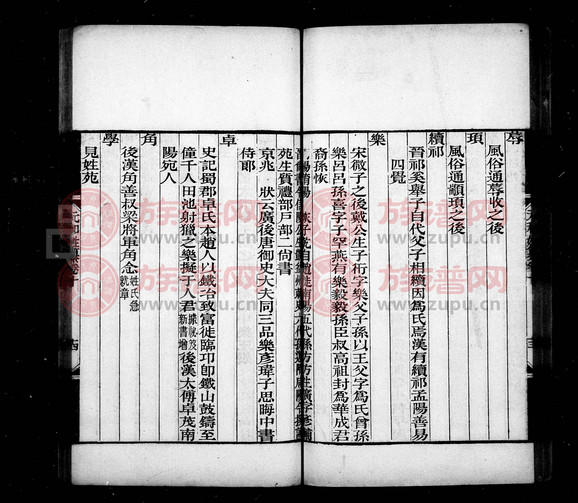 蓐
風俗通蓐收之後
頊
風俗通顓頊之後
續祁
晉祁奚舉子自代父子相續因爲氏焉漢有續祁孟陽善易
四覺
樂
宋微子之後戴公生子衎字樂父子孫以王父字爲氏曾孫
樂呂孫喜字子罕燕有樂毅毅孫臣叔高祖封爲華成君
裔孫恢
苑生賓禮部戸部二尙書
京兆 狀云廣後唐御史大夫同三品樂彥瑋子思晦中書
侍郞
卓
史記蜀郡卓氏本趙人以鐵冶致富徙臨卭卽鐵山鼓鑄至
僮千人田池射獵之樂擬于人君 後漢太傅卓茂南
陽宛人
角
後漢角善叔梁將軍角念 姓氏急就章
學
見姓苑
族譜网
www.zupu.cn